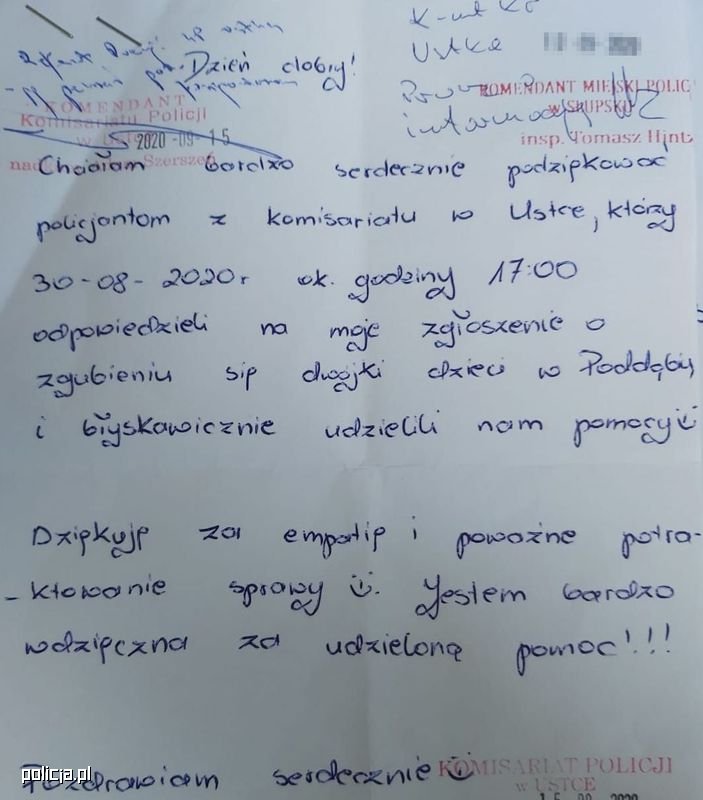 K-nt KP
Ustka
Dzień dobry!
KOMENDANT MIEJSKI POLIC
W SŁUPSKU
insp. Tomasz Hint
KOMENDANT
Komisariatu Policji
w Ustce
2020 -09- 15
Szerszeń
Chciałam bardzo serdecznie podziękować
policjantom z komisariatu w Ustce, którzy
30-08-2020r ok. godziny 17:00
odpowiedzieli na moje zgłoszenie o
zgubieniu się dwójki dzieci w Poddąbiu
i błyskawicznie udzielili nam pomocy
Dziękuję za empatię i poważne potra-
-ktowanie sprawy. Jestem bardzo
wdzięczna za udzieloną pomoc!!!
Pozdrawiam serdecznie
KOMISARIAT POLICJI
w USTCE
policja.pl